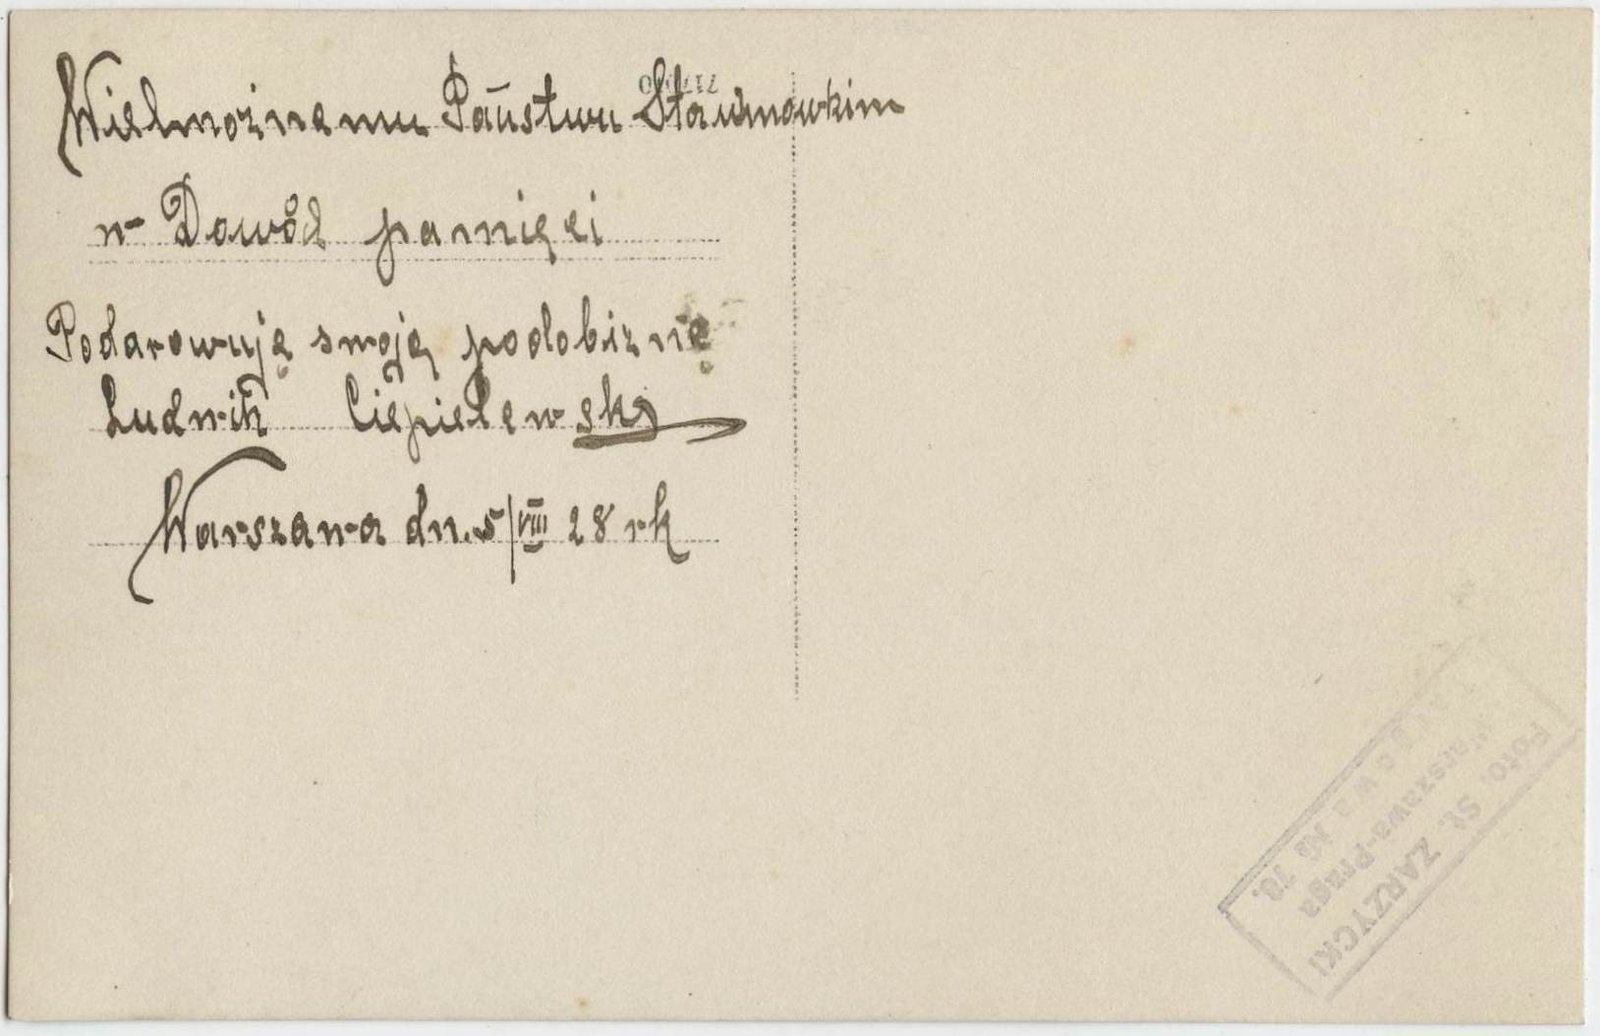 Wielmożnemu Państwu
w Dowód pamięci
Podarowuję swoję podobiznę
Ludwik Ciepielewski
Warszawa dn. 5/VIII 28 rk
Foto. St. ZARZYCKI
Warszawa-Praga
№ 78.